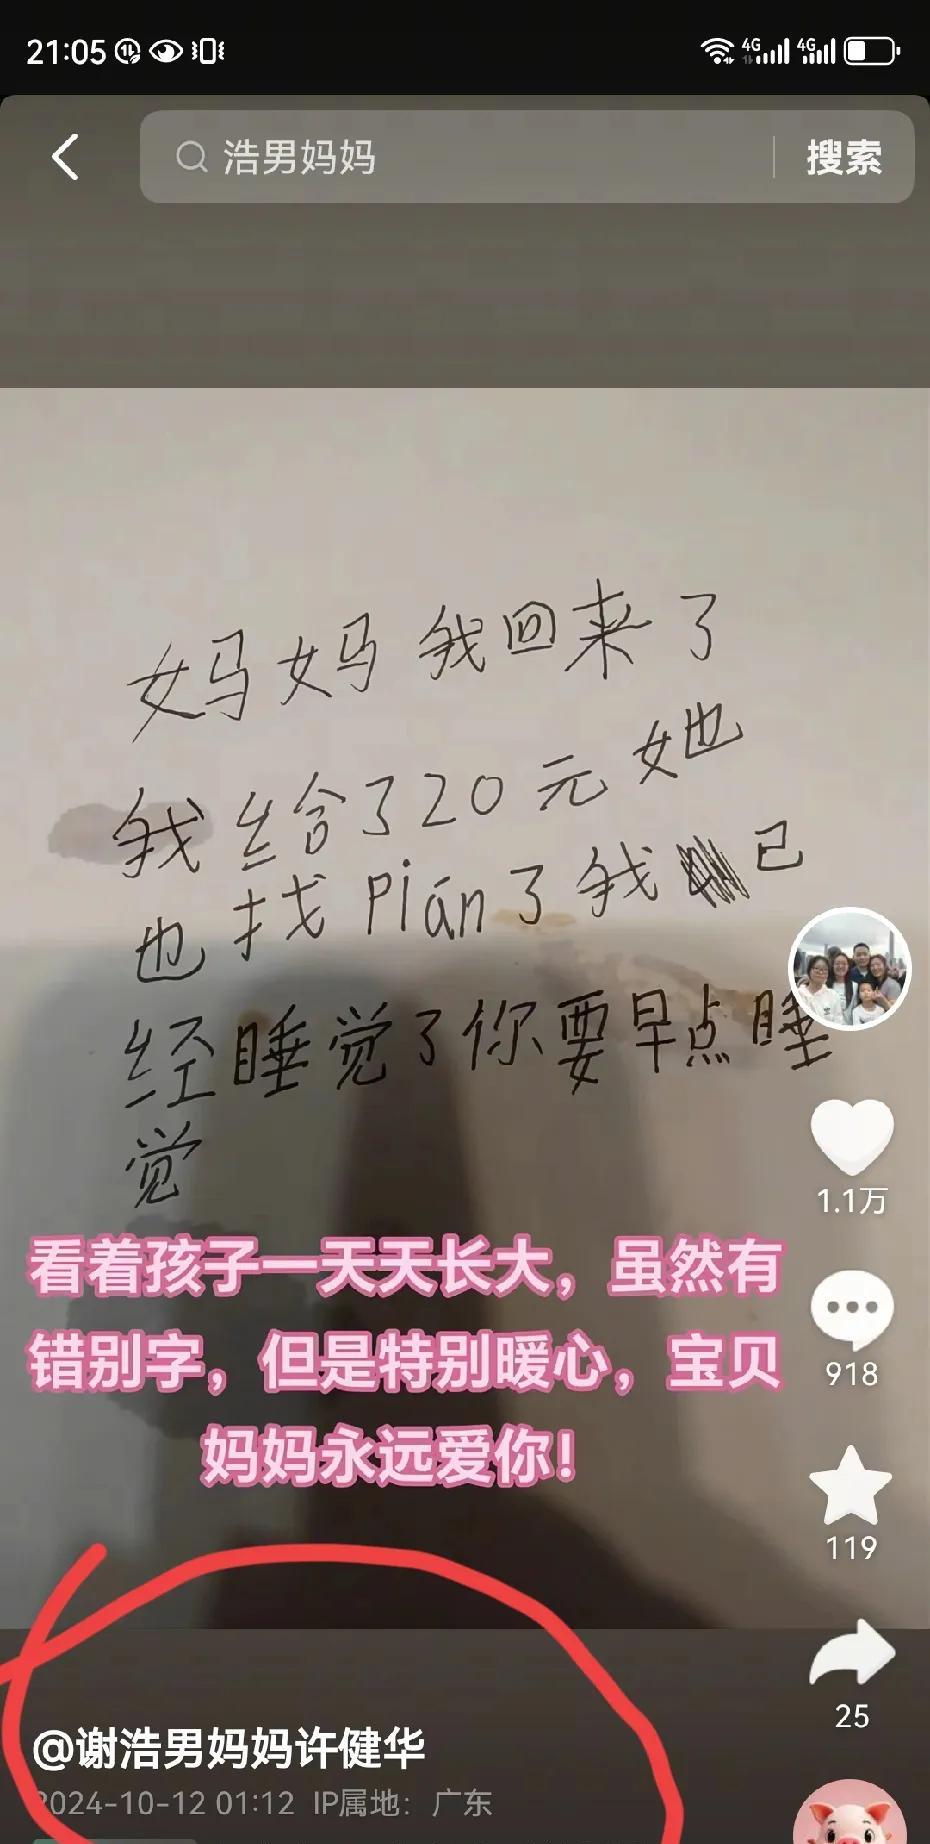 21:05
4G 4G
浩男妈妈 搜索
妈妈我回来了
我给了20元她
也找Pián了我已
经睡觉了你要早点睡
觉
1.1万
看着孩子一天天长大，虽然有
错别字，但是特别暖心，宝贝
妈妈永远爱你！
918
119
25
@谢浩男妈妈许健华
2024-10-12 01:12 IP属地：广东